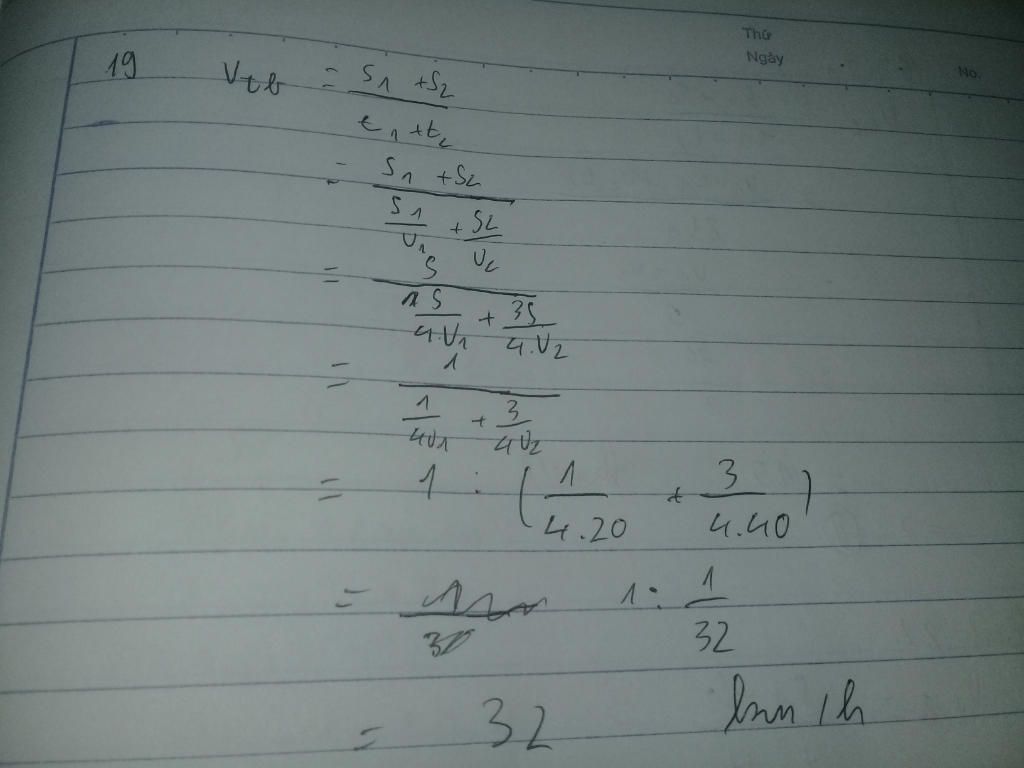 Thứ
Ngày
No.
19 Vtb = S1 + S2
t1 + t2
= S1 + S2
S1/V1 + S2/V2
= S
1S/4.V1 + 3S/4.V2
= 1
1/4V1 + 3/4V2
= 1 : (1/4.20 + 3/4.40)
= 1 : 1/32
= 32 km/h